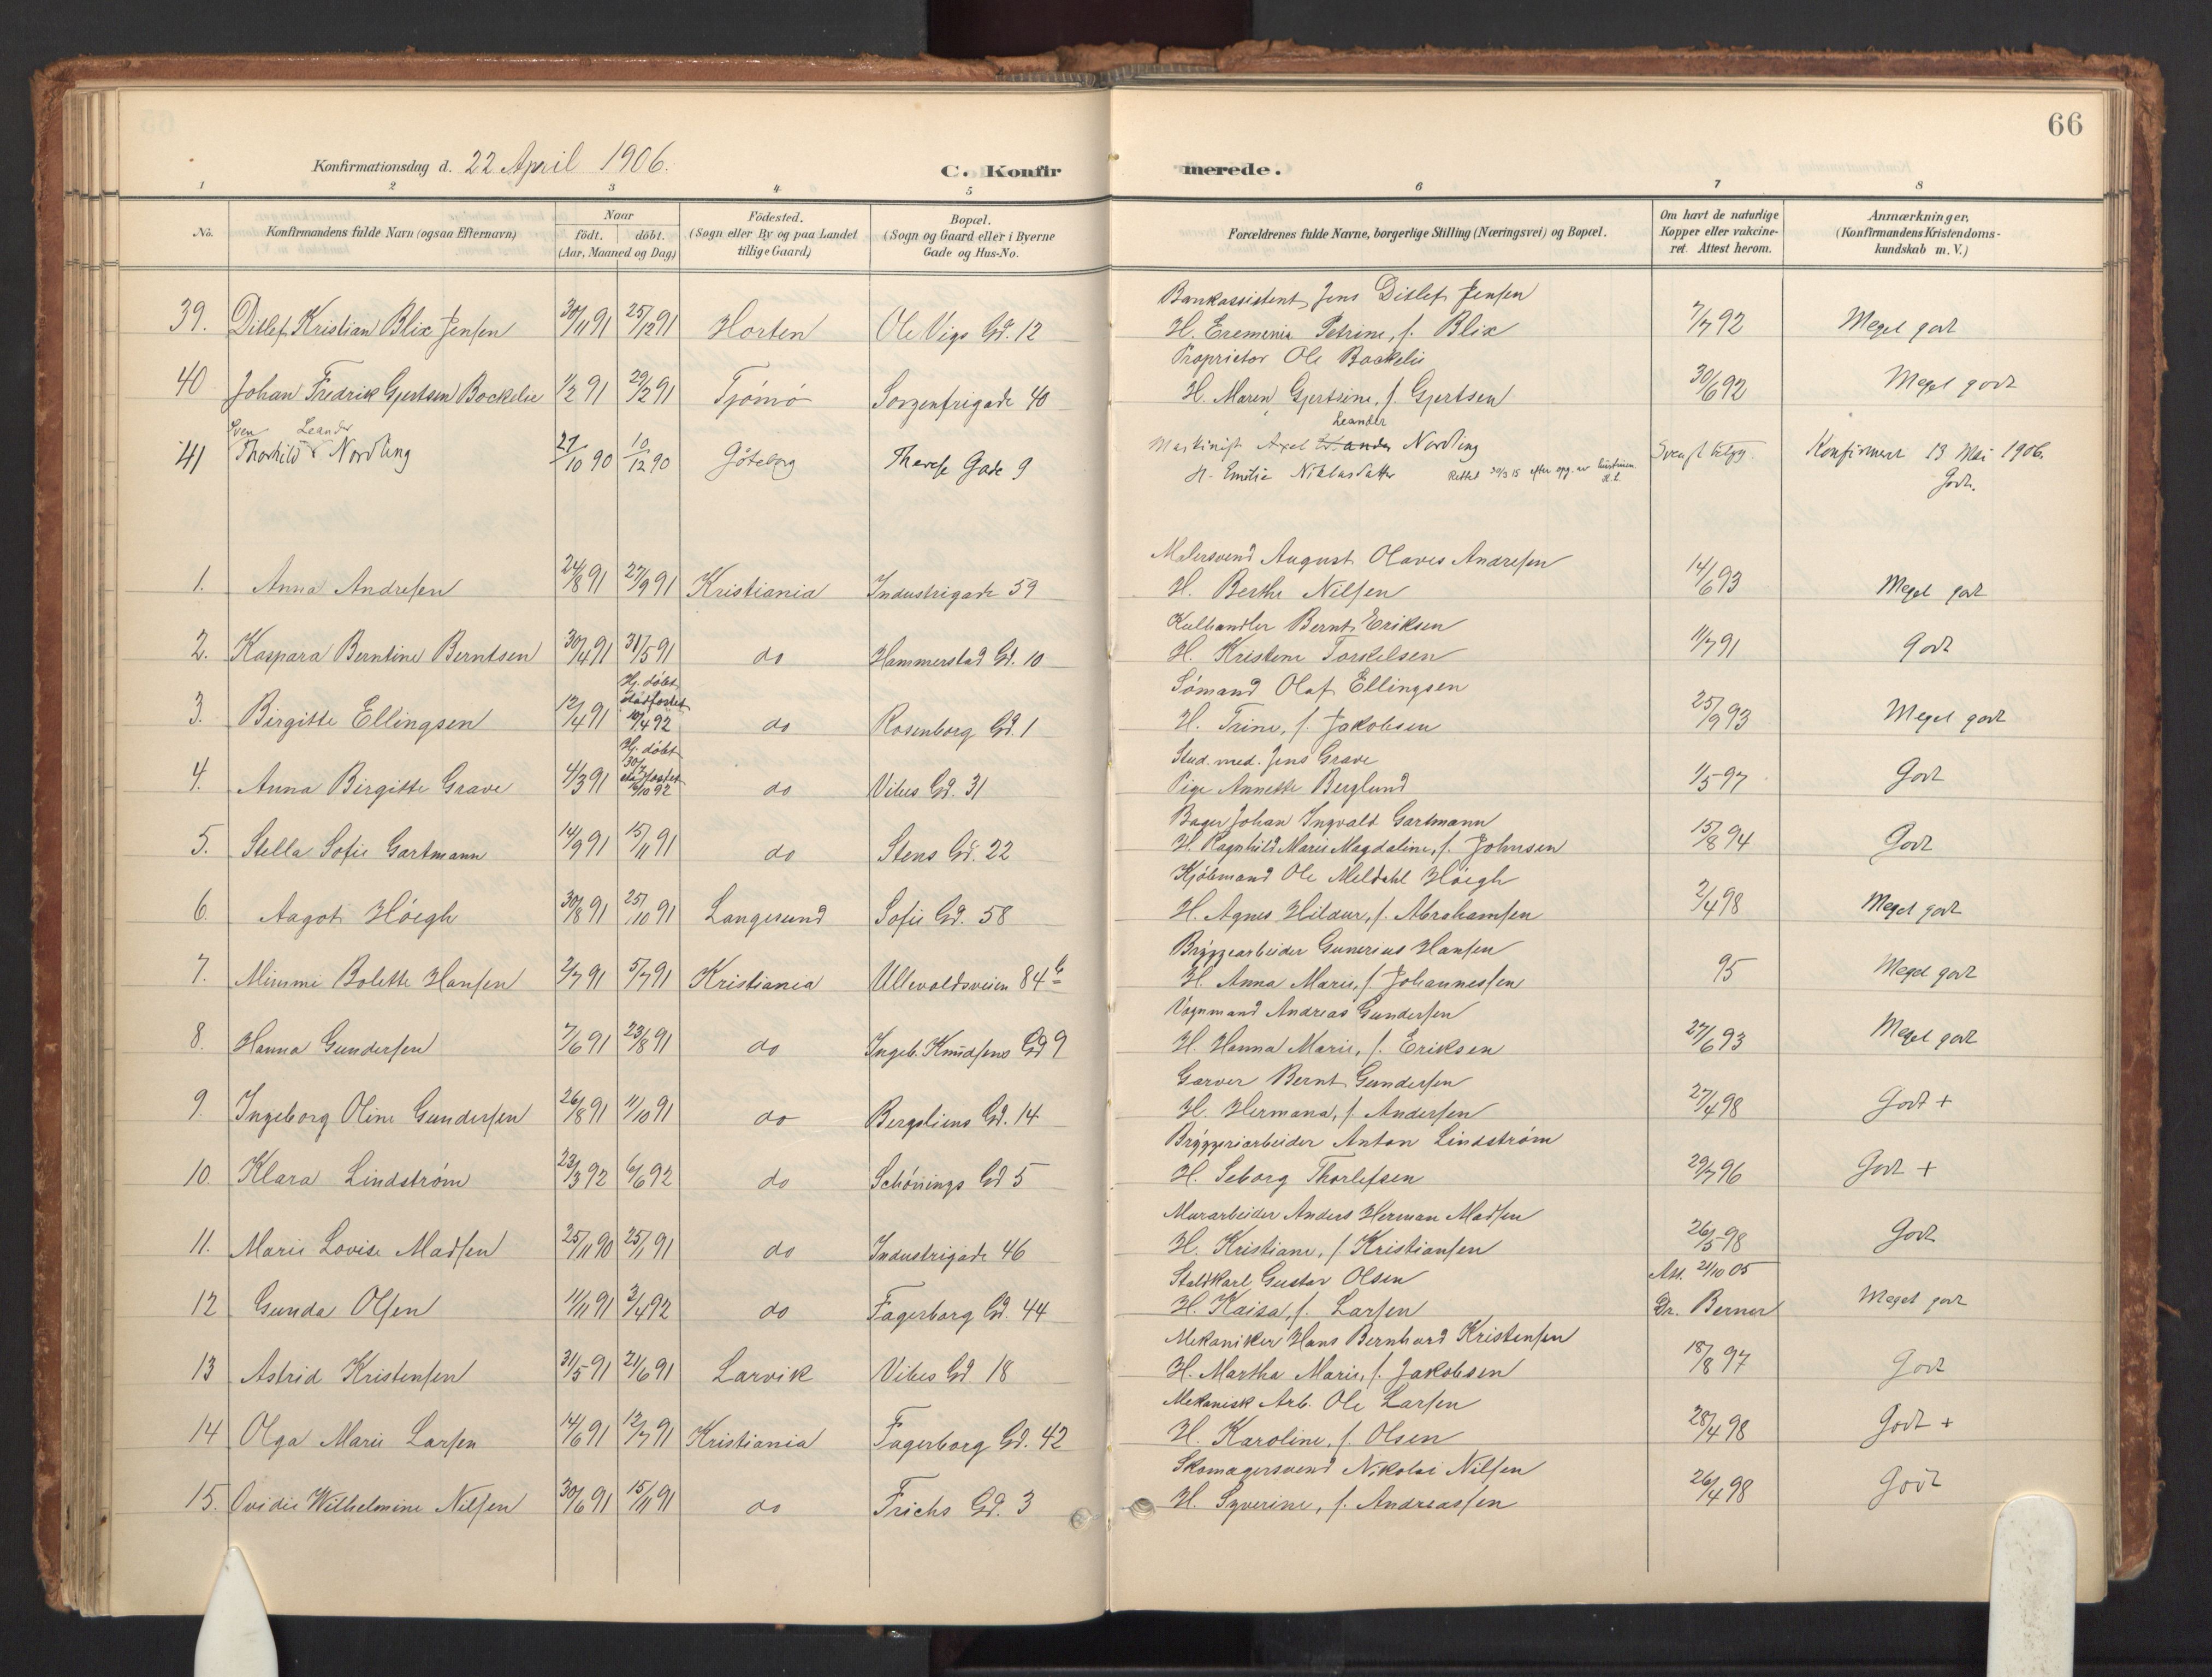 66
Konfirmationsdag d. 22 April 1906.
C. Konfirmerede.
1 2 3 4 5 6 7 8
No. Konfirmandens fulde Navn (ogsaa Efternavn) Naar født. døbt. (Aar, Maaned og Dag) Födested. (Sogn eller By og paa Landet tillige Gaard) Bopæl. (Sogn og Gaard eller i Byerne Gade og Hus-No. Forældrenes fulde Navne, borgerlige Stilling (Næringsvei) og Bopæl. Om havt de naturlige Kopper eller vakcineret. Attest herom. Anmærkninger, (Konfirmandens Kristendomskundskab m. V.)
Bankassistent Jens Ditlef Jensen
39. Ditlef Kristian Blix Jensen 30/11 91 25/12 91 Horten Ole Vigs Gd. 12 H. Eremenia Petrine, f. Blix 7/7 92 Meget godt
Proprietør Ole Bockelie
40 Johan Fredrik Gjertsen Bockelie 1/2 91 29/12 91 Tjømø Sorgenfrigade 40 H. Maren Gjertsine, f. Gjertsen 30/6 92 Meget godt
Sven Leander Leander
41 Thorhild Nordling 27/10 90 10/12 90 Göteborg Therese Gade 9 Maskinist Axel Nordling Svensk Konfirmert 13 Mai 1906.
H. Emilie Niklasdatter Rettet 30/3 15 efter opg. av Godt.
Malersvend August Olaves Andresen
1. Anna Andresen 24/8 91 27/9 91 Kristiania Industrigade 59 H. Berthe Nilsen 14/6 93 Meget godt
Kulhandler Bernt Eriksen
2. Kaspara Berntine Berntsen 30/4 91 31/5 91 do Hammerstad Gd. 10 H. Kristine Torkelsen 11/7 91 Godt
Hj. døbt stadfæstet Sømand Olaf Ellingsen
3. Birgitte Ellingsen 12/4 91 10/4 92 do Rosenborg Gd. 1 H. Trine, f. Jakobsen 25/9 93 Meget godt
Hj. døbt 30/3 Stud. med. Jens Grave
4. Anna Birgitte Grave 4/3 91 stadfæstet 16/10 92 do Vibes Gd. 31 Pige Annette Berglund 1/5 97 Godt
Bager Johan Ingvald Gartmann
5. Stella Sofie Gartmann 14/9 91 15/11 91 do Stens Gd. 22 H. Ragnhild Marie Magdaline, f. Johnsen 15/8 94 Godt
Kjøbmand Ole Meldahl Høegh
6. Aagot Høegh 30/8 91 25/10 91 Langesund Sofie Gd. 58 H. Agnes Hildur, f. Abrahamsen 2/4 98 Meget godt
Bryggearbeider Gunerius Hansen
7. Mimmi Bolette Hansen 2/7 91 5/7 91 Kristiania Ullevoldsveien 84 b H. Anna Marie, f. Johannessen 95 Meget godt
Vognmand Andreas Gundersen
8. Hanna Gundersen 7/6 91 23/8 91 do Ingeb. Knudsens Gd 9 H. Hanna Marie, f. Eriksen 27/6 93 Meget godt
Garver Bernt Gundersen
9. Ingeborg Oline Gundersen 26/8 91 11/10 91 do Bergsliens Gd. 14 H. Hermana, f. Andersen 27/4 98 Godt +
Bryggeriarbeider Anton Lindstrøm
10. Klara Lindstrøm 23/3 92 6/6 92 do Schønings Gd 5 H. Seborg Thorlefsen 29/7 96 Godt +
Murarbeider Anders Herman Madsen
11. Marie Lovise Madsen 25/11 90 25/1 91 do Industrigade 46 H. Kristiane, f. Kristiansen 26/5 98 Godt
Staldkarl Gustav Olsen Att. 21/10 05
12 Gunda Olsen 11/11 91 3/4 92 do Fagerborg Gd. 44 H. Kaisa, f. Larsen Dr. Berner Meget godt
Mekaniker Hans Bernhard Kristensen
13 Astrid Kristensen 31/5 91 21/6 91 Larvik Vibes Gd. 18 H. Martha Marie, f. Jakobsen 18/8 97 Godt
Mekanisk Arb. Ole Larsen
14 Olga Marie Larsen 14/6 91 12/7 91 Kristiania Fagerborg Gd. 42 H. Karoline, f. Olsen 28/4 98 Godt +
Skomagersvend Nikolai Nilsen
15. Ovidie Wilhelmine Nilsen 30/6 91 15/11 91 do Frichs Gd. 3 H. Syverine, f. Andreassen 26/4 98 Godt